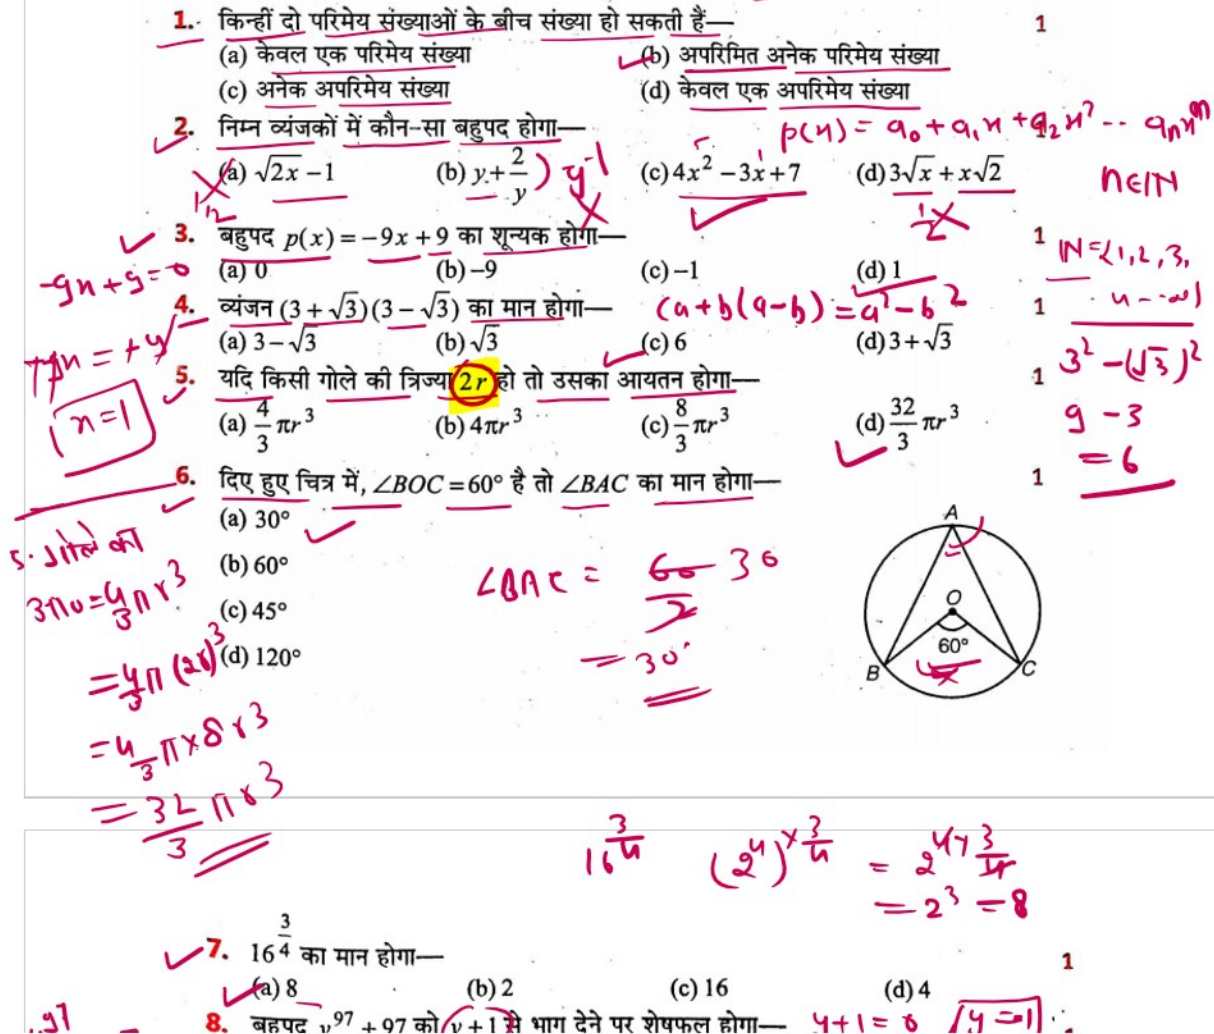 1. किन्हीं दो परिमेय संख्याओं के बीच संख्या हो सकती हैं— 1
(a) केवल एक परिमेय संख्या (b) अपरिमित अनेक परिमेय संख्या
(c) अनेक अपरिमेय संख्या (d) केवल एक अपरिमेय संख्या
2. निम्न व्यंजकों में कौन-सा बहुपद होगा— 1
p(x) = a₀ + a₁x + a₂x² -- aₙxⁿ
(a) √2x − 1 (b) y + 2/y ) y⁻¹ (c) 4x² − 3x + 7 (d) 3√x + x√2 n∈N
1/2 × 1/2 ×
3. बहुपद p(x) = −9x + 9 का शून्यक होगा— 1 N = {1, 2, 3,
-9x + 9 = 0 (a) 0 (b) −9 (c) −1 (d) 1
4. व्यंजन (3 + √3)(3 − √3) का मान होगा— (a+b(a-b) = a² - b² 1
(a) 3 − √3 (b) √3 (c) 6 (d) 3 + √3
3² - (√3)²
5. यदि किसी गोले की त्रिज्या 2r हो तो उसका आयतन होगा— 1
x = 1
(a) 4/3 πr³ (b) 4πr³ (c) 8/3 πr³ (d) 32/3 πr³
9 - 3
= 6
6. दिए हुए चित्र में, ∠BOC = 60° है तो ∠BAC का मान होगा— 1
(a) 30°
(b) 60°
(c) 45°
(d) 120°
∠BAC = 60/2 30
= 30°
A
O
60°
B C
5. गोले का
= 4/3 πr³
= 4/3 π (2r)³
= 4/3 π × 8r³
= 32/3 πr³
16^3/4 (2⁴)^×3/4 = 2^4×3/4
= 2³ = 8
7. 16^3/4 का मान होगा— 1
(a) 8 (b) 2 (c) 16 (d) 4
8. बहुपद y⁹⁷ + 97 को (y + 1) से भाग देने पर शेषफल होगा— y+1 = 0 y = -1